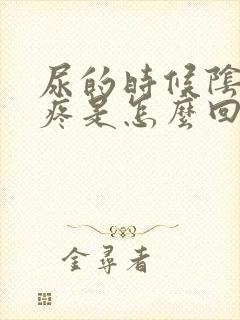 尿的時候陰
疼是怎麼回
金尋者